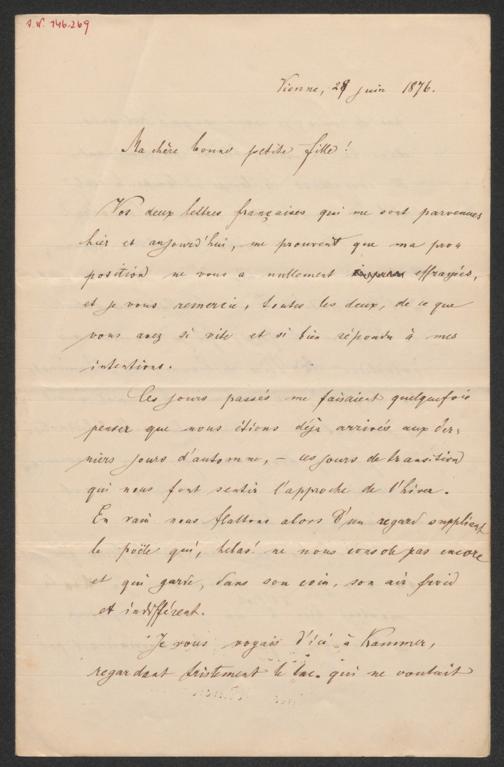 I.N. 146.269
Vienne, 28 juin 1876.
Ma chère bonne petite fille!
Vos deux lettres françaises qui me sont parvenues
hier et aujourd'hui, me prouvent que ma pro-
position ne vous a nullement effrayées,
et je vous remercie, toutes les deux, de ce que
vous avez si vite et si bien répondu à mes
intentions.
Ces jours passés me faisaient quelquefois
penser que nous étions déjà arrivés aux der-
niers jours d'automne, – ces jours de transition
qui nous font sentir l'approche de l'hiver.
En vain nous flattons alors d'un regard suppliant
le poële qui, helas! ne nous console pas encore
et qui garde, dans son coin, son air froid
et indifférent.
Je vous voyais d'ici à Kammer,
regardant tristement le lac qui ne voulait